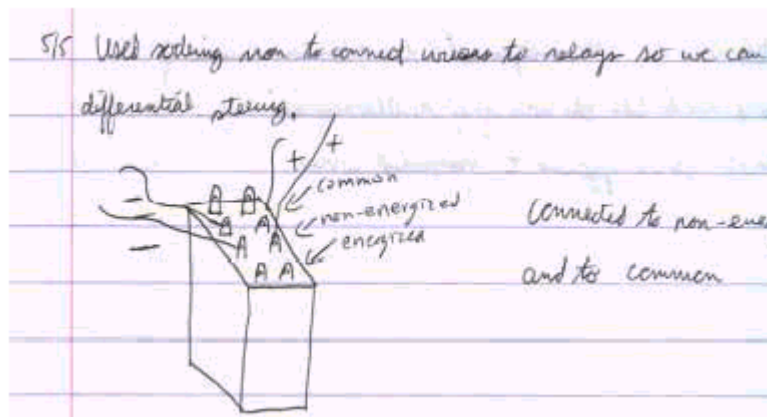 5/5 Used sodering iron to connect wires to relays so we can
differential steering.
+ +
common
non-energized
energized
Connected to non-ener
and to common